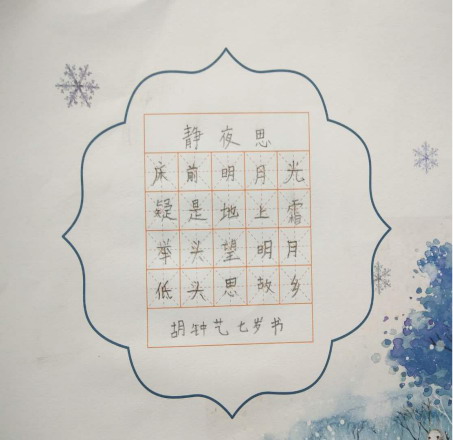 静夜思
床前明月光
疑是地上霜
举头望明月
低头思故乡
胡钟艺七岁书